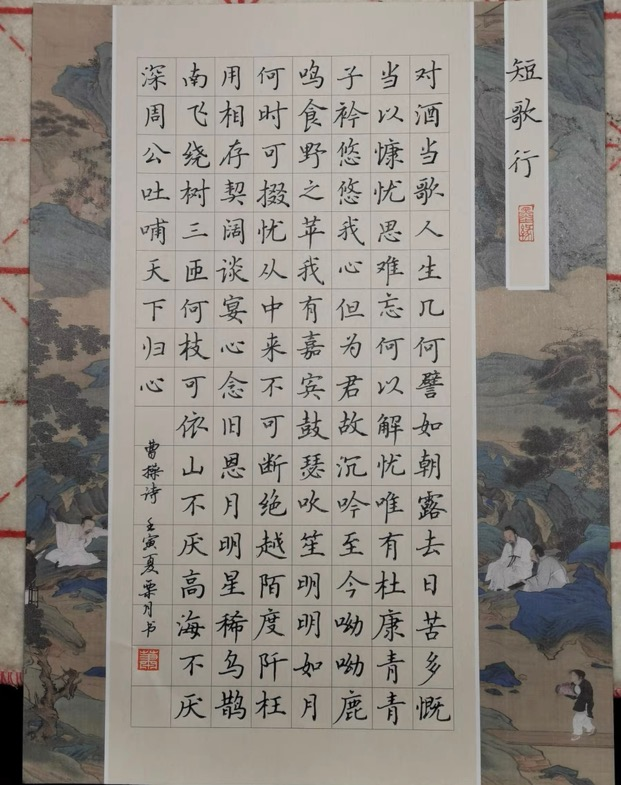 短歌行
对酒当歌人生几何譬如朝露去日苦多慨
当以慷忧思难忘何以解忧唯有杜康青青
子衿悠悠我心但为君故沉吟至今呦呦鹿
鸣食野之苹我有嘉宾鼓瑟吹笙明明如月
何时可掇忧从中来不可断绝越陌度阡枉
用相存契阔谈宴心念旧恩月明星稀乌鹊
南飞绕树三匝何枝可依山不厌高海不厌
深周公吐哺天下归心
曹操诗 壬寅夏栗月书